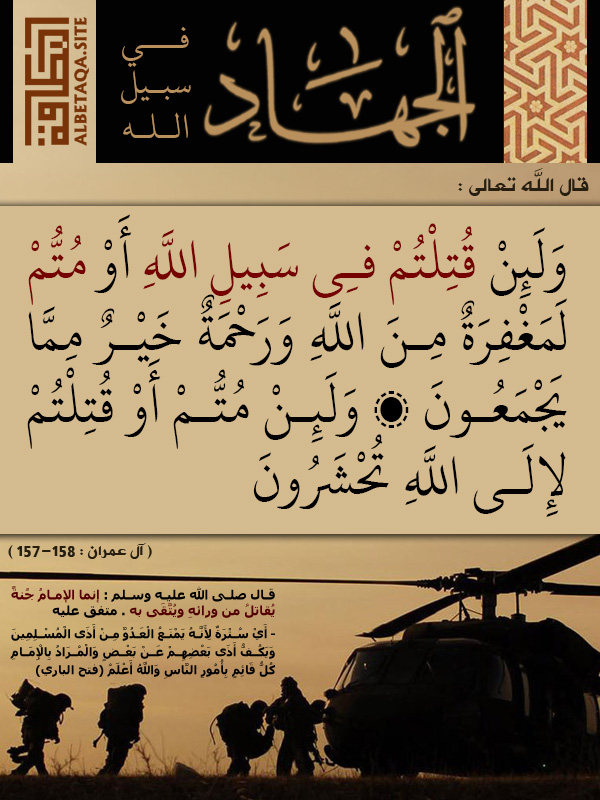 البطاقة
ALBETAQA.SITE
الجهاد
فـــي
سبيل
اللـه
قال اللَّه تعالى :
وَلَئِنْ قُتِلْتُمْ فــِى سَبِيلِ اللَّهِ أَوْ مُتُّمْ
لَمَغْفِرَةٌ مِــنَ اللَّهِ وَرَحْمَةٌ خَيْــرٌ مِمَّا
يَجْمَعُــونَ وَلَئِــنْ مُتُّــمْ أَوْ قُتِلْتُمْ
لَإِلَــى اللَّهِ تُحْشَرُونَ
( آل عمران : 158–157 )
قـال صلـى الله عليـه وسـلم : إنمـا الإمـامُ جُنةٌ
يُقاتَلُ من ورائهِ ويُتَّقَى به . متفق عليه
- أَيْ سُـتْرَةٌ لِأَنَّـهُ يَمْنَـعُ الْعَـدُوَّ مِـنْ أَذَى الْمُسْـلِمِينَ
وَيَكُـفُّ أَذَى بَعْضِهِـمْ عَـنْ بَعْـضٍ وَالْمُـرَادُ بِالْإِمَامِ
كُلُّ قَائِمٍ بِأُمُورِ النَّاسِ وَاللَّهُ أَعْلَمُ (فتح الباري)